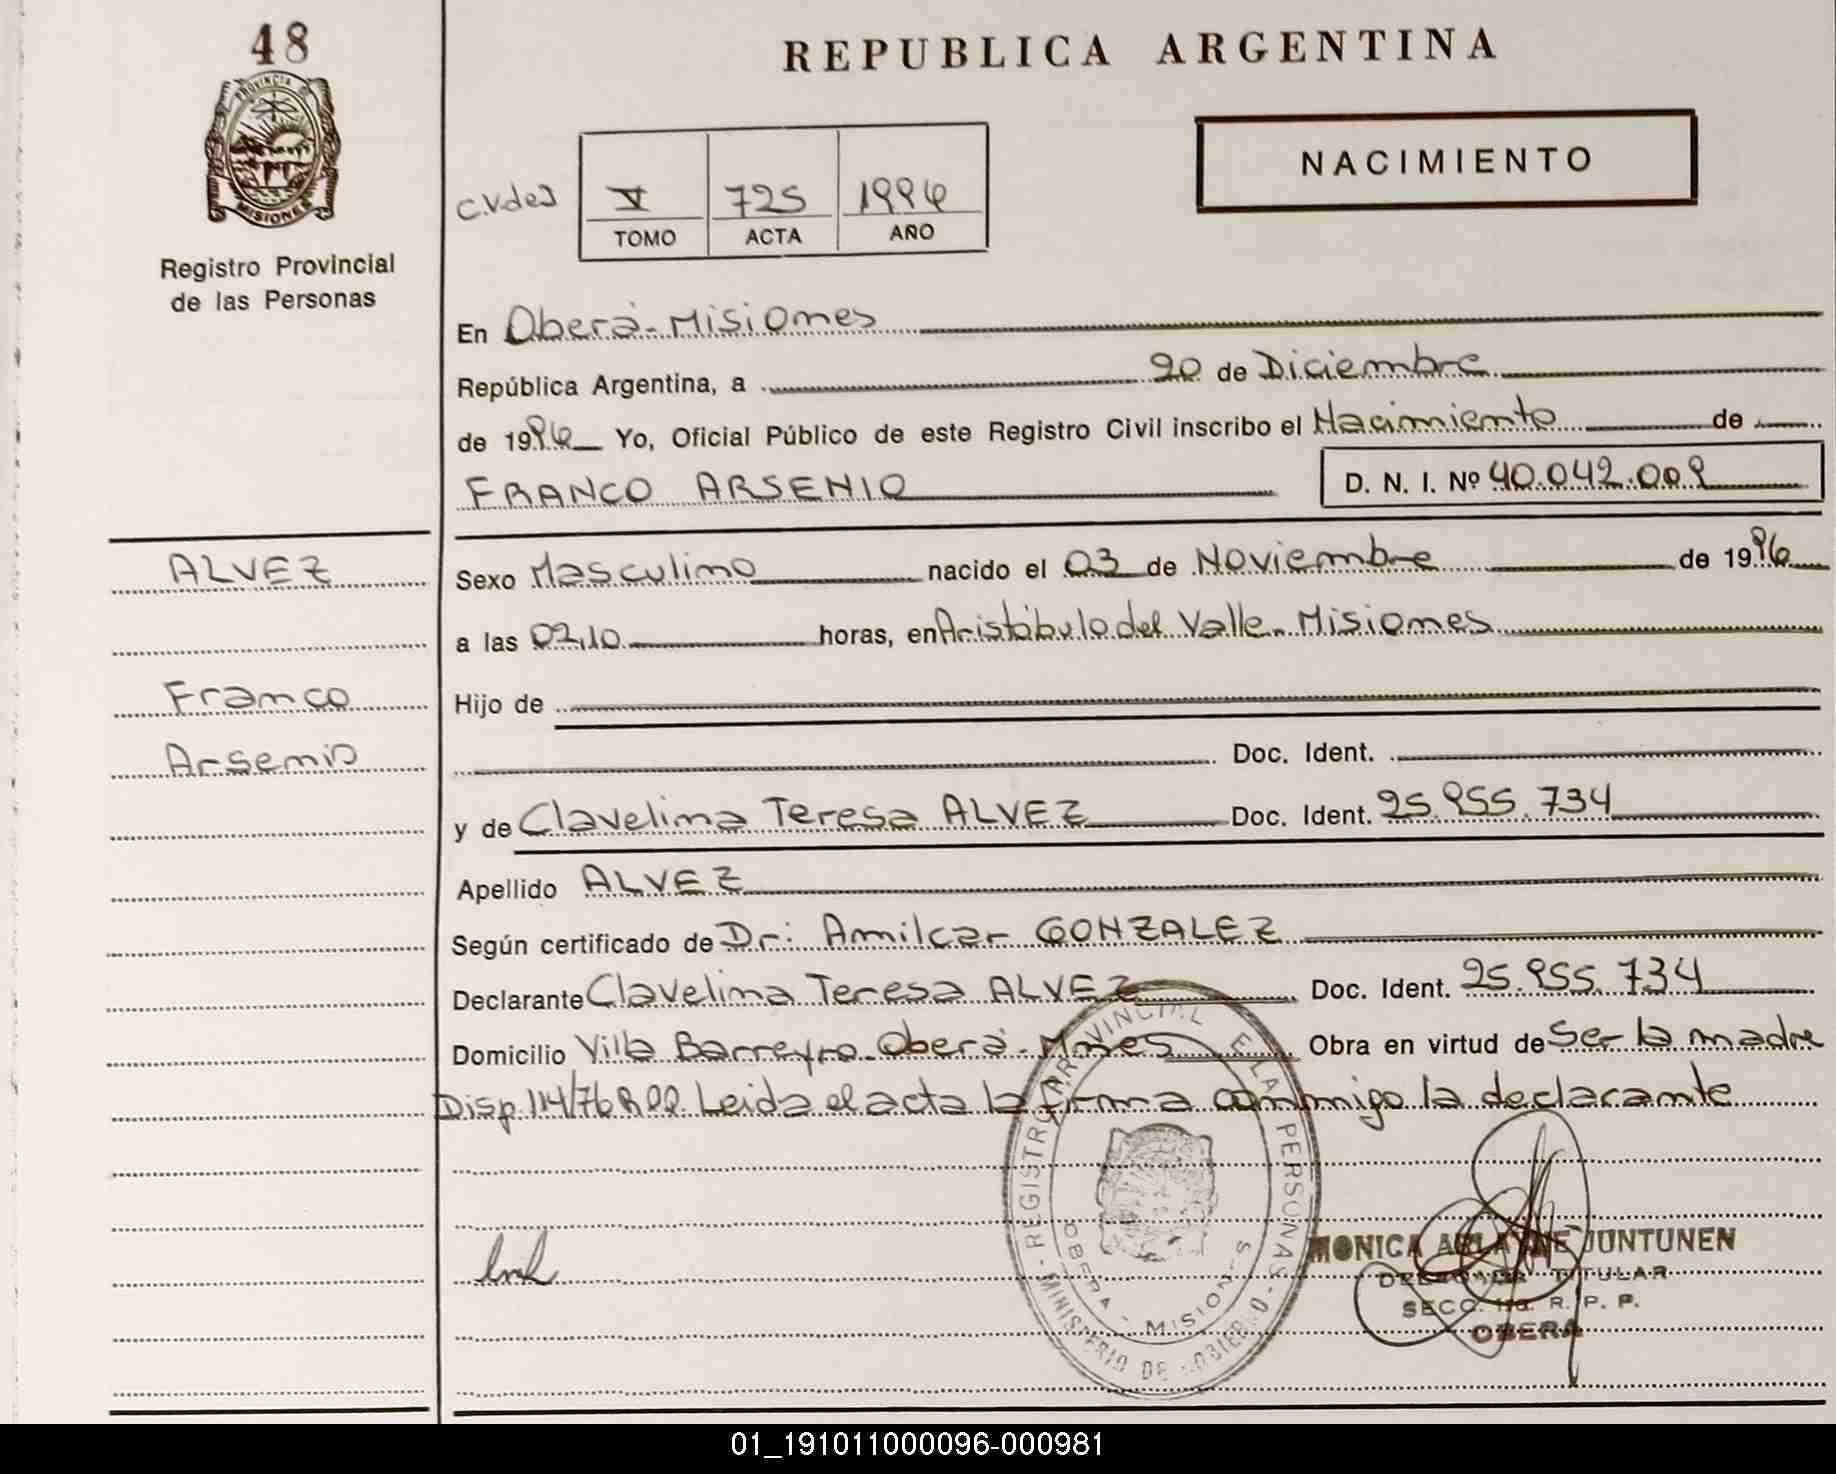 48
REPUBLICA ARGENTINA
PROVINCIA D
MISIONES
NACIMIENTO
C.V de J
V 725 1996
TOMO ACTA AÑO
Registro Provincial
de las Personas
En Oberá - Misiones
República Argentina, a 20 de Diciembre
de 1996 Yo, Oficial Público de este Registro Civil inscribo el Nacimiento de
FRANCO ARSENIO D. N. I. Nº 40.042.009
ALVEZ
Sexo Masculino nacido el 03 de Noviembre de 1996
a las 02,10 horas, en Aristóbulo del Valle - Misiones
Franco
Hijo de
Arsenio
Doc. Ident.
y de Clavelina Teresa ALVEZ Doc. Ident. 25.955.734
Apellido ALVEZ
Según certificado de Dr: Amilcar GONZALEZ
Declarante Clavelina Teresa ALVEZ Doc. Ident. 25.955.734
Domicilio Villa Barreyro - Oberá - Mnes Obra en virtud de Ser la madre
Disp 114/76 Leida el acta la firma conmigo la declarante
REGISTRO PROVINCIAL E LA PERSONAS
OBERA - MISION S
MINISTERIO DE
MONICA JUNTUNEN
TITULAR
SECC. R. P. P.
OBERA
01_191011000096-000981